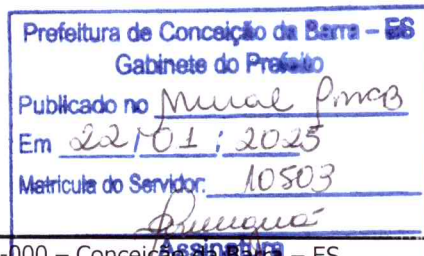 Prefeitura de Conceição da Barra – ES
Gabinete do Prefeito
Publicado no Mural PMCB
Em 22/01/2025
Matricula do Servidor: 10503
Assinatura
-000 – Conceição da Barra – ES